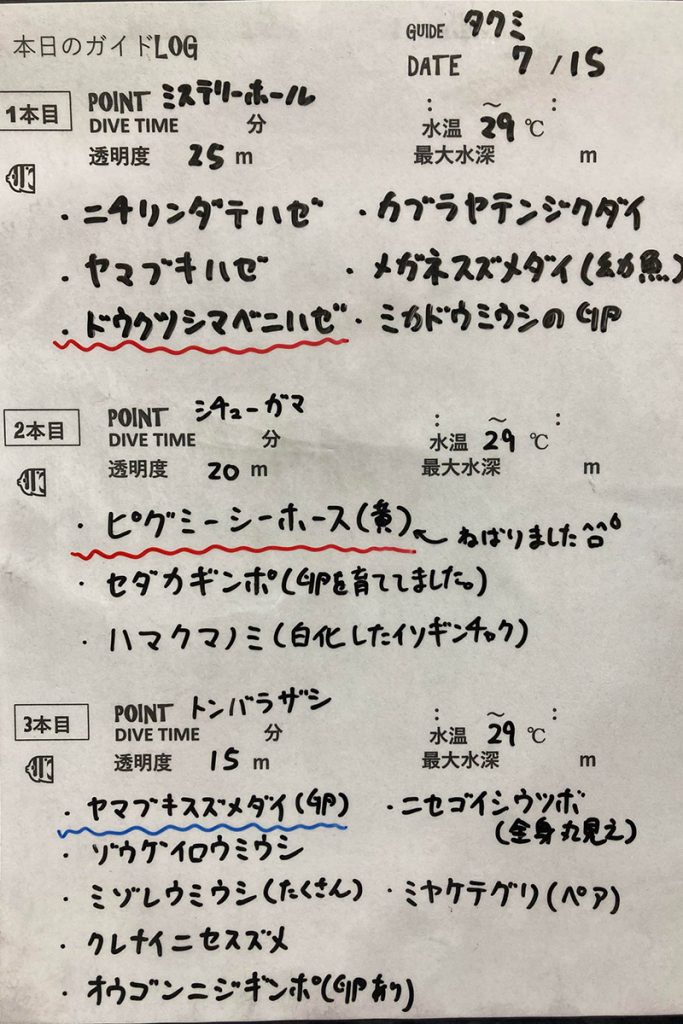 本日のガイドLOG
GUIDE タクミ
DATE 7/15
1本目 POINT ミステリーホール : ～ :
DIVE TIME 分 水温 29℃
透明度 25m 最大水深 m
・ニチリンダテハゼ ・カブラヤテンジクダイ
・ヤマブキハゼ ・メガネスズメダイ(幼魚)
・ドウクツシマベニハゼ ・ミカドウミウシの卵
2本目 POINT シチューガマ : ～ :
DIVE TIME 分 水温 29℃
透明度 20m 最大水深 m
・ピグミーシーホース(黄) ← ねばりました
・セダカギンポ(卵を育ててました。)
・ハマクマノミ(白化したイソギンチャク)
3本目 POINT トンバラザシ : ～ :
DIVE TIME 分 水温 29℃
透明度 15m 最大水深 m
・ヤマブキスズメダイ(卵) ・ニセゴイシウツボ
(全身丸見え)
・ゾウゲイロウミウシ
・ミゾレウミウシ(たくさん) ・ミヤケテグリ(ペア)
・クレナイニセスズメ
・オウゴンニジギンポ(卵あり)